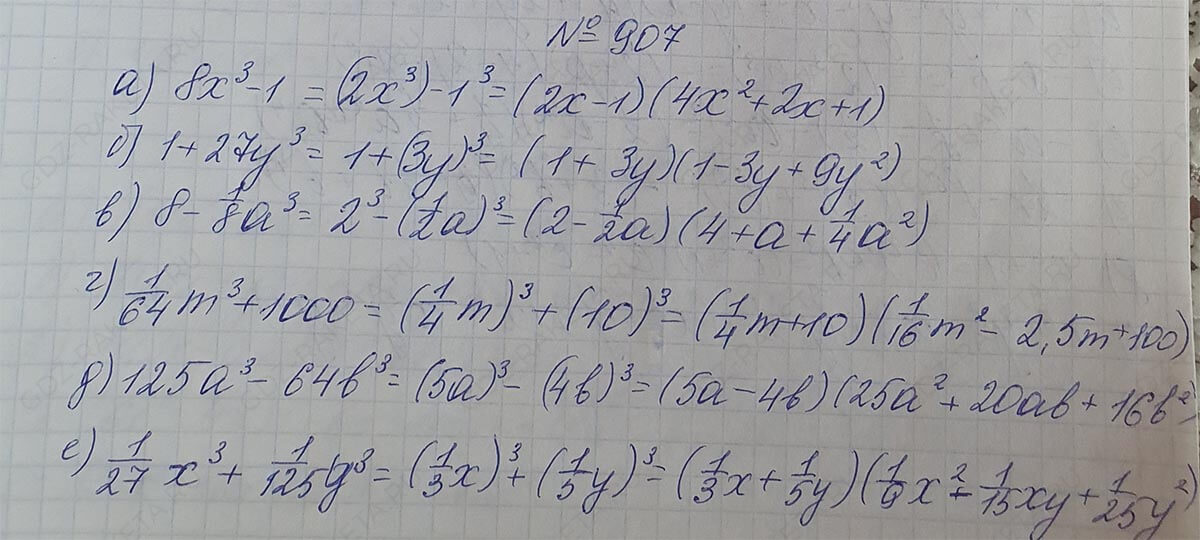 № 907
а) 8x³-1 = (2x³)-1³ = (2x-1)(4x²+2x+1)
б) 1+27y³ = 1+(3y)³ = (1+3y)(1-3y+9y²)
в) 8-1/8a³ = 2³-(1/2a)³ = (2-1/2a)(4+a+1/4a²)
г) 1/64m³+1000 = (1/4m)³+(10)³ = (1/4m+10)(1/16m²-2,5m+100)
д) 125a³-64b³ = (5a)³-(4b)³ = (5a-4b)(25a²+20ab+16b²)
е) 1/27x³+1/125y³ = (1/3x)³+(1/5y)³ = (1/3x+1/5y)(1/9x²-1/15xy+1/25y²)